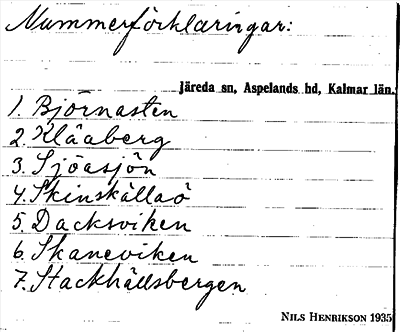 Nummerförklaringar:
Järeda sn, Aspelands hd, Kalmar län.
1. Björnasten
2. Klåaberg
3. Sjöasjön
4. Skinskällaö
5. Dacksviken
6. Skaneviken
7. Stackhällsbergen
NILS HENRIKSON 1935